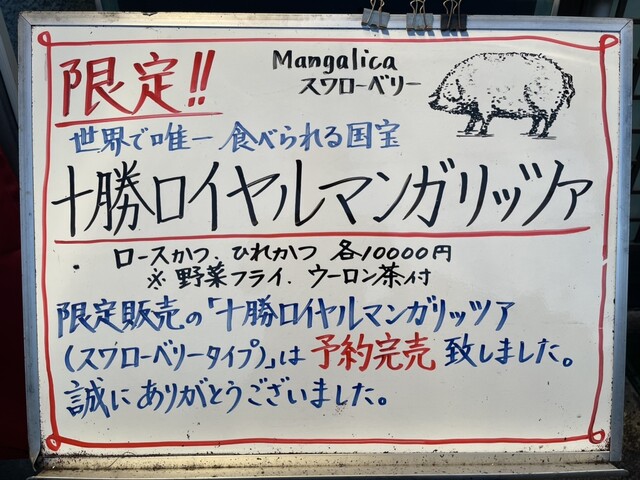 限定!!
Mangalica
スワローベリー
世界で唯一 食べられる国宝
十勝ロイヤルマンガリッツァ
. ロースかつ、ひれかつ 各10000円
※ 野菜フライ、ウーロン茶付
限定販売の「十勝ロイヤルマンガリッツア
(スワローベリータイプ)」は 予約完売 致しました。
誠にありがとうございました。